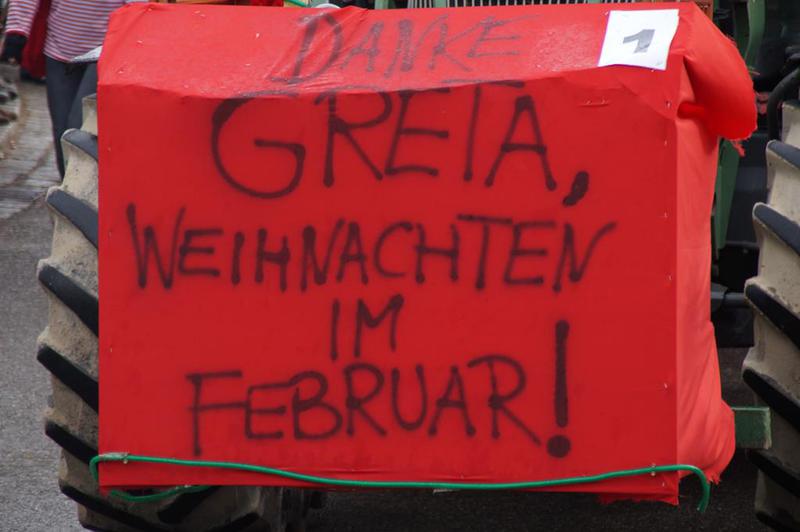 DANKE
1
GRETA,
WEIHNACHTEN
IM
FEBRUAR!